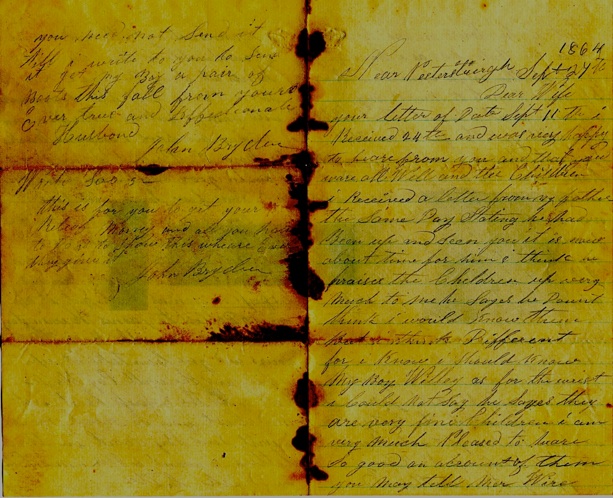 1864
Near Petersburgh Sept 24 th
Dear Wife
your letter of Date Sept 11 th i
Received 24 th and was very happy
to heare from you and that you
ware all Well and the Children
i Received a letter from my father
the Same Day Stating he had
Been up and seen you it is
about time for him i think
praises the Children up very
much to me he Sayes he
think i would Know them
but i think Different
for i Know i should Know
My Boy Willey as for the
i Could Not Say he Sayes they
are very fine Children i am
very much Pleased to heare
So good an account of them
you May tell
you need not Send it
till i write to you to Send
it get my Boy a pair of
Boots this fall from yours
Ever true and Affectionate
Husbond
John Bryden
this is for you to get your
Money and all you have
to to Show this wheare
John Bryden